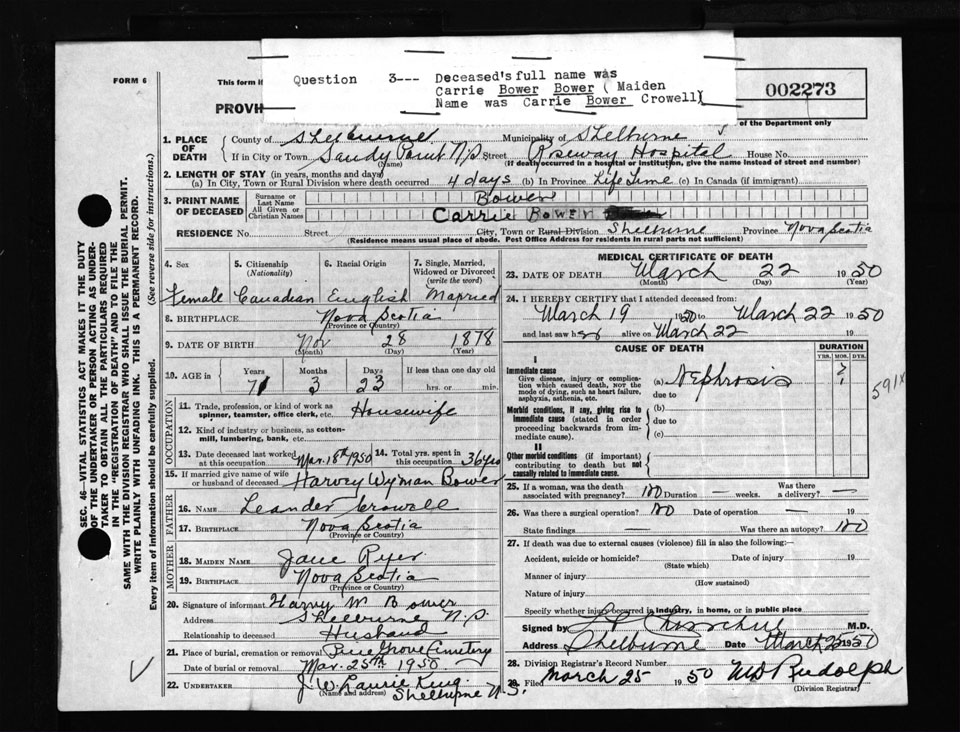 Question 3--- Deceased's full name was
Carrie Bower Bower ( Maiden
Name was Carrie Bower Crowell)
FORM 6
This form if
002273
PROVI
of the Department only
1. PLACE OF DEATH
County of Shelburne Municipality of Shelburne
If in City or Town Sandy Point N.S. Street Roseway Hospital House No.
(Name) (If death occurred in a hospital or institution, give the name instead of street and number)
2. LENGTH OF STAY (in years, months and days)
(a) In City, Town or Rural Division where death occurred 4 days (b) In Province Life Time (c) In Canada (if immigrant)
3. PRINT NAME OF DECEASED
Surname or Last Name Bower
All Given or Christian Names Carrie Bower
RESIDENCE No. Street City, Town or Rural Division Shelburne Province Nova Scotia
(Residence means usual place of abode. Post Office Address for residents in rural parts not sufficient)
4. Sex 5. Citizenship (Nationality) 6. Racial Origin 7. Single, Married, Widowed or Divorced (write the word)
Female Canadian English Married
8. BIRTHPLACE Nova Scotia
(Province or Country)
9. DATE OF BIRTH Nov 28 1878
(Month) (Day) (Year)
10. AGE in Years Months Days If less than one day old
71 3 23 hrs. or min.
OCCUPATION
11. Trade, profession, or kind of work as spinner, teamster, office clerk, etc. Housewife
12. Kind of industry or business, as cotton-mill, lumbering, bank, etc.
13. Date deceased last worked at this occupation Mar. 18th 1950 14. Total yrs. spent in this occupation 36 yrs
15. If married give name of wife or husband of deceased Harvey Wyman Bower
FATHER
16. Name Leander Crowell
17. Birthplace Nova Scotia
(Province or Country)
MOTHER
18. Maiden Name Jane Ryer
19. Birthplace Nova Scotia
(Province or Country)
20. Signature of informant Harvey W Bower
Address Shelburne N.S.
Relationship to deceased Husband
21. Place of burial, cremation or removal Pine Grove Cemetery
Date of burial or removal Mar. 25th 1950
22. UNDERTAKER J. W. Laurie King
(Name and address) Shelburne N.S.
MEDICAL CERTIFICATE OF DEATH
23. DATE OF DEATH March 22 1950
(Month) (Day) (Year)
24. I HEREBY CERTIFY that I attended deceased from:
March 19 1950 to March 22 1950
and last saw her alive on March 22 19
CAUSE OF DEATH DURATION
YRS. MOS. DYS.
I
Immediate cause
Give disease, injury or complication which caused death, NOT the mode of dying, such as heart failure, asphyxia, asthenia, etc.
(a) Nephrosis ?
due to
591X
Morbid conditions, if any, giving rise to immediate cause (stated in order proceeding backwards from immediate cause).
(b)
due to
(c)
II
Other morbid conditions (if important) contributing to death but not causally related to immediate cause.
25. If a woman, was the death associated with pregnancy? no Duration — weeks. Was there a delivery? —
26. Was there a surgical operation? no Date of operation — 19
State findings — Was there an autopsy? no
27. If death was due to external causes (violence) fill in also the following:—
Accident, suicide or homicide? Date of injury 19
(State which)
Manner of injury
(How sustained)
Nature of injury
Specify whether injury occurred in industry, in home, or in public place
Signed by Churchill M.D.
Address Shelburne Date March 25 1950
28. Division Registrar's Record Number
29. Filed March 25 1950 M D Rudolph
(Division Registrar)
SEC. 46—VITAL STATISTICS ACT MAKES IT THE DUTY
OF THE UNDERTAKER OR PERSON ACTING AS UNDER-
TAKER TO OBTAIN ALL THE PARTICULARS REQUIRED
IN THE "REGISTRATION OF DEATH" AND TO FILE THE
SAME WITH THE DIVISION REGISTRAR WHO SHALL ISSUE THE BURIAL PERMIT.
WRITE PLAINLY WITH UNFADING INK. THIS IS A PERMANENT RECORD.
Every item of information should be carefully supplied. (See reverse side for instructions.)